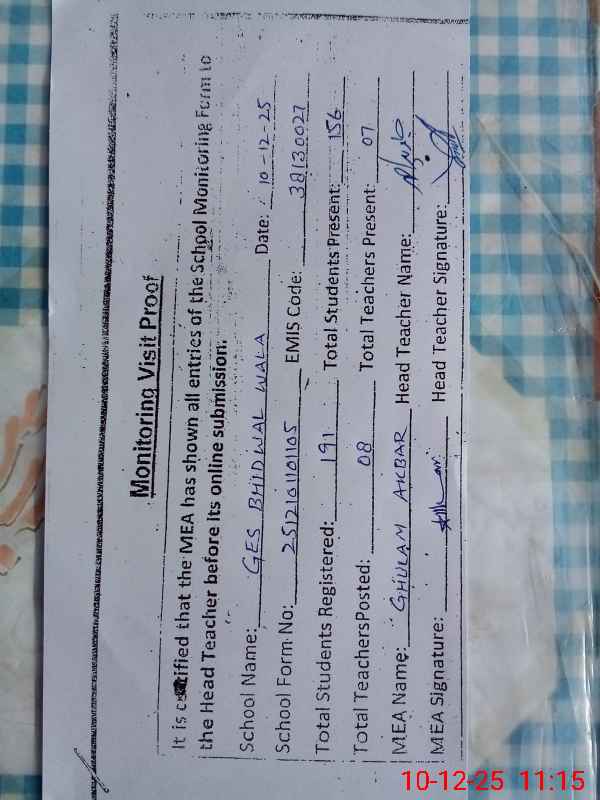 Monitoring Visit Proof
It is certified that the MEA has shown all entries of the School Monitoring Form to
the Head Teacher before its online submission.
School Name: GES BHIDWAL WALA Date: 10-12-25
School Form No: 2512101101105 EMIS Code: 38130027
Total Students Registered: 191 Total Students Present: 156
Total TeachersPosted: 08 Total Teachers Present: 07
MEA Name: GHULAM AKBAR Head Teacher Name:
MEA Signature: Head Teacher Signature:
10-12-25 11:15